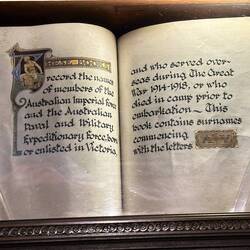 THESE BOOKS
record the names
of members of the
Australian Imperial force
and the Australian
Naval and Military
Expeditionary Force, born
or enlisted in Victoria,
and who served over-
seas during The Great
War 1914-1918, or who
died in camp prior to
embarkation ~ This
book contains surnames
commencing
with the letters